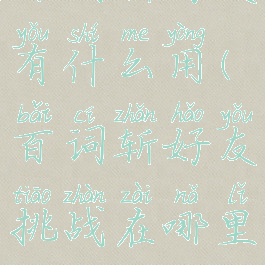 yǒu shé me yòng
有什么用(
bǎi cí zhǎn hǎo yǒu
百词斩好友
tiāo zhàn zài nǎ lǐ
挑战在哪里